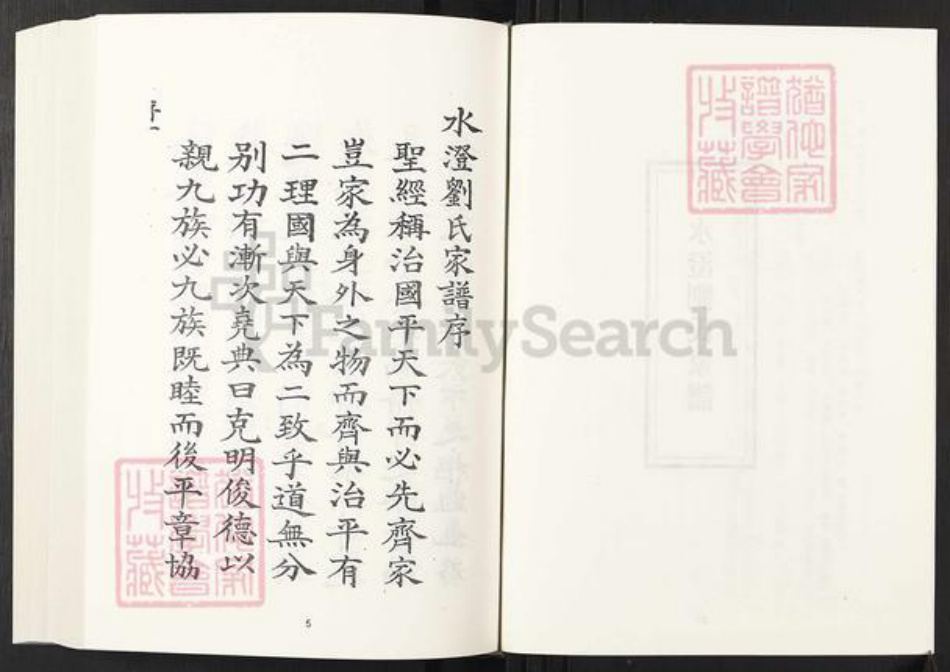 水澄劉氏家譜序
聖經稱治國平天下而必先齊家
豈家為身外之物而齊與治平有
二理國與天下為二致乎道無分
別功有漸次堯典曰克明俊德以
親九族必九族既睦而後平章協
序一
5
猶他家
譜學會
收藏
猶他家
譜學會
收藏
FamilySearch